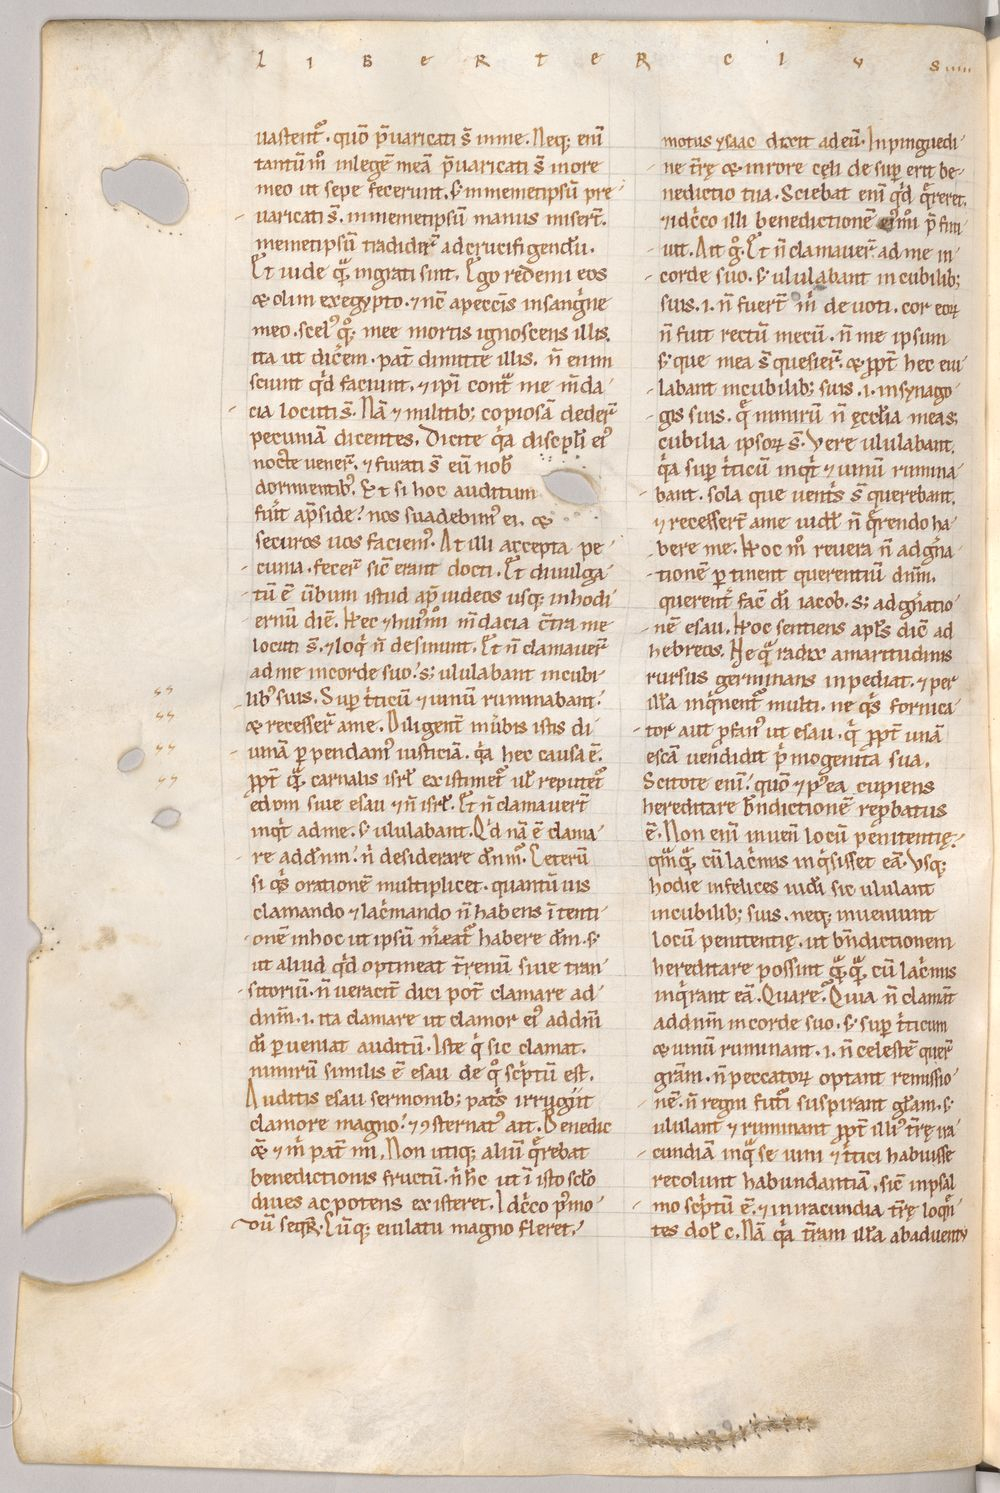 LIBER TERCIUS
uastent᷑. quō p̄uaricati s̄ in me. Neq; eni᷑
tantū m̊ in legē meā p̄uaricati s̄ more
meo ut sepe fecerunt. s; in memetipsū pre
uaricati s̄. in memetipsū manus miser̄t.
memetipsū tradider̄ ad crucifigendū.
Et uide q̄ ingrati sint. Ego redemi eos
& olim ex egypto. ⁊ nc̄ a peccīs in sanguīne
meo. scelꝰ q̊; mee mortis ignoscens illis.
ita ut dicer̄em. pat̄ dimitte illis. n̄ enim
sciunt qͥd faciunt. ⁊ ip̄i cont̄ me m̄da
cia locuti s̄. Nā ⁊ militib; copiosā deder̄
pecuniā dicentes. Dicite qͥa discip̄li eiꝰ
nocte uener̄. ⁊ furati s̄ eū nob̄
dormientibꝰ. Et si hoc auditum
fūit ap̄side? nos suadebimꝰ ei. &
securos uos faciemꝰ. At illi accepta pe
cunia. fecer̄ sic̄ erant docti. Et diuulga
tū ē ūbum istud ap̄ iudeos usq; in hodi
ernū diē. Hec ⁊ huiꝰm̊i m̄dacia c̄tra me
locuti s̄. ⁊ loqͥ n̄ desinunt. Et n̄ clamauer̄
ad me in corde suo? s; ululabant in cubi
libꝰ suis. Sup̄ tͥticū ⁊ uinū ruminabant.
& recesser̄ a me. Diligent̄ in ūbis istis di
uinā perpendamꝰ iusticiā. qͥa hec causa ē.
pp̄t q̄ carnalis isrł existimet᷑ uł reputet᷑
edom siue esau ⁊ n̄ isrł. Et n̄ clamauer̄t
inqͥt ad me. s; ululabant. Qͥd nā ē clama
re ad dn̄m. nͥ desiderare dn̄m. Ceterū
si qͥs orationē multiplicet. quantū uis
clamando ⁊ lacͥmando n̄ habens ītenti
onē in hoc ut ipsū m̄eat᷑ habere dn̄m. s;
ut aliud qͥd optineat t̄renū siue tran
sitoriū. n̄ ueracit̄ dici pot̄ clamare ad
dn̄m. i. ita clamare ut clamor eiꝰ ad dn̄i
dī perueniat auditū. Iste qͥ sic clamat.
nimirū similis ē esau de q̊ scͥptū est.
Auditis esau sermonib; patͥs irrugiit
clamore magno. ⁊ ꝯsternatꝰ ait. Benedic
& ⁊ m̄ pat̄ mi. Non utiq; aliū q̄rebat
benedictionis fructū. nͥ hc̄ ut ī isto sclo
diues ac potens existeret. Idcͥco pͥmo
cū seqr̄. Cūq; eiulatu magno fleret.
motus ysaac dixit ad eū. In pinguedi
ne t̄rę & in rore cęli desup̄ erit be
nedictio tua. Sciebat enī qͥd q̄reret.
⁊ idcͥco illi benedictionē eiꝰm̊i
uit. Ait g̊. Et n̄ clamauer̄ ad me in
corde suo. s; ululabant in cubilib;
suis. i. n̄ fuer̄t m̄ deuoti. cor eorꝝ
n̄ fuit rectū mecū. n̄ me ipsum
s; que mea s̄ quesier̄. & pp̄t hec eiu
labant in cubilib; suis. i. in synago
gis suis. q̄ nimirū n̄ ęccłia meas;
cubilia ipsorꝝ s̄. Vere ululabant.
qͥa sup̄ tͥticū inqͥt ⁊ uinū rumina
bant. sola que uentͥs s̄ querebant.
⁊ recesser̄t a me uidł n̄ q̄rendo ha
bere me. Hoc m̊ reuera n̄ ad gn̄a
tionē pertinent querentiū dn̄m.
querent̄ faciē dī iacob. s; ad gn̄atio
nē esau. Hoc sentiens apłs dic̄ ad
hebreos. Ne q̄ radix amaritudinis
rursus germinans inpediat. ⁊ per
illā inqͥnent᷑ multi. ne qͥs fornica
tor aut p̱fanꝰ ut esau. qͥ pp̄t unā
escā uendidit pͥmogenita sua.
Scitote enī. quō ⁊ pꝰea cupiens
hereditare bn̄dictionē rep̱batus
ē. Non enī inuen̄ locū penitentię.
qm̄q̄ cū lacͥmis inqͥsisset eā. Vsq;
hodie infelices iudī sic ululant
in cubilib; suis. neq; inueniunt
locū penitentię. ut bn̄dictionem
hereditare possint q̄q̄ cū lacͥmis
inqͥrant eā. Quare. Quia n̄ clamāt
ad dn̄m in corde suo. s; sup̄ tͥticum
& uinū ruminant. i. n̄ celestē quer̄
grām. n̄ peccatorꝝ optant remissio
nē. n̄ regni futͥi suspirant głam. s;
ululant ⁊ ruminant pp̄t illiꝰ t̄rę ua
cundiā inq̄ se uini ⁊ tͥtici habuisse
recolunt habundantiā. sic̄ in psal
mo scͥptū ē. ⁊ in iracundia t̄rę loqͥ
tes dolͦ c. Nā qͥa t̄ram illā ab aduentu